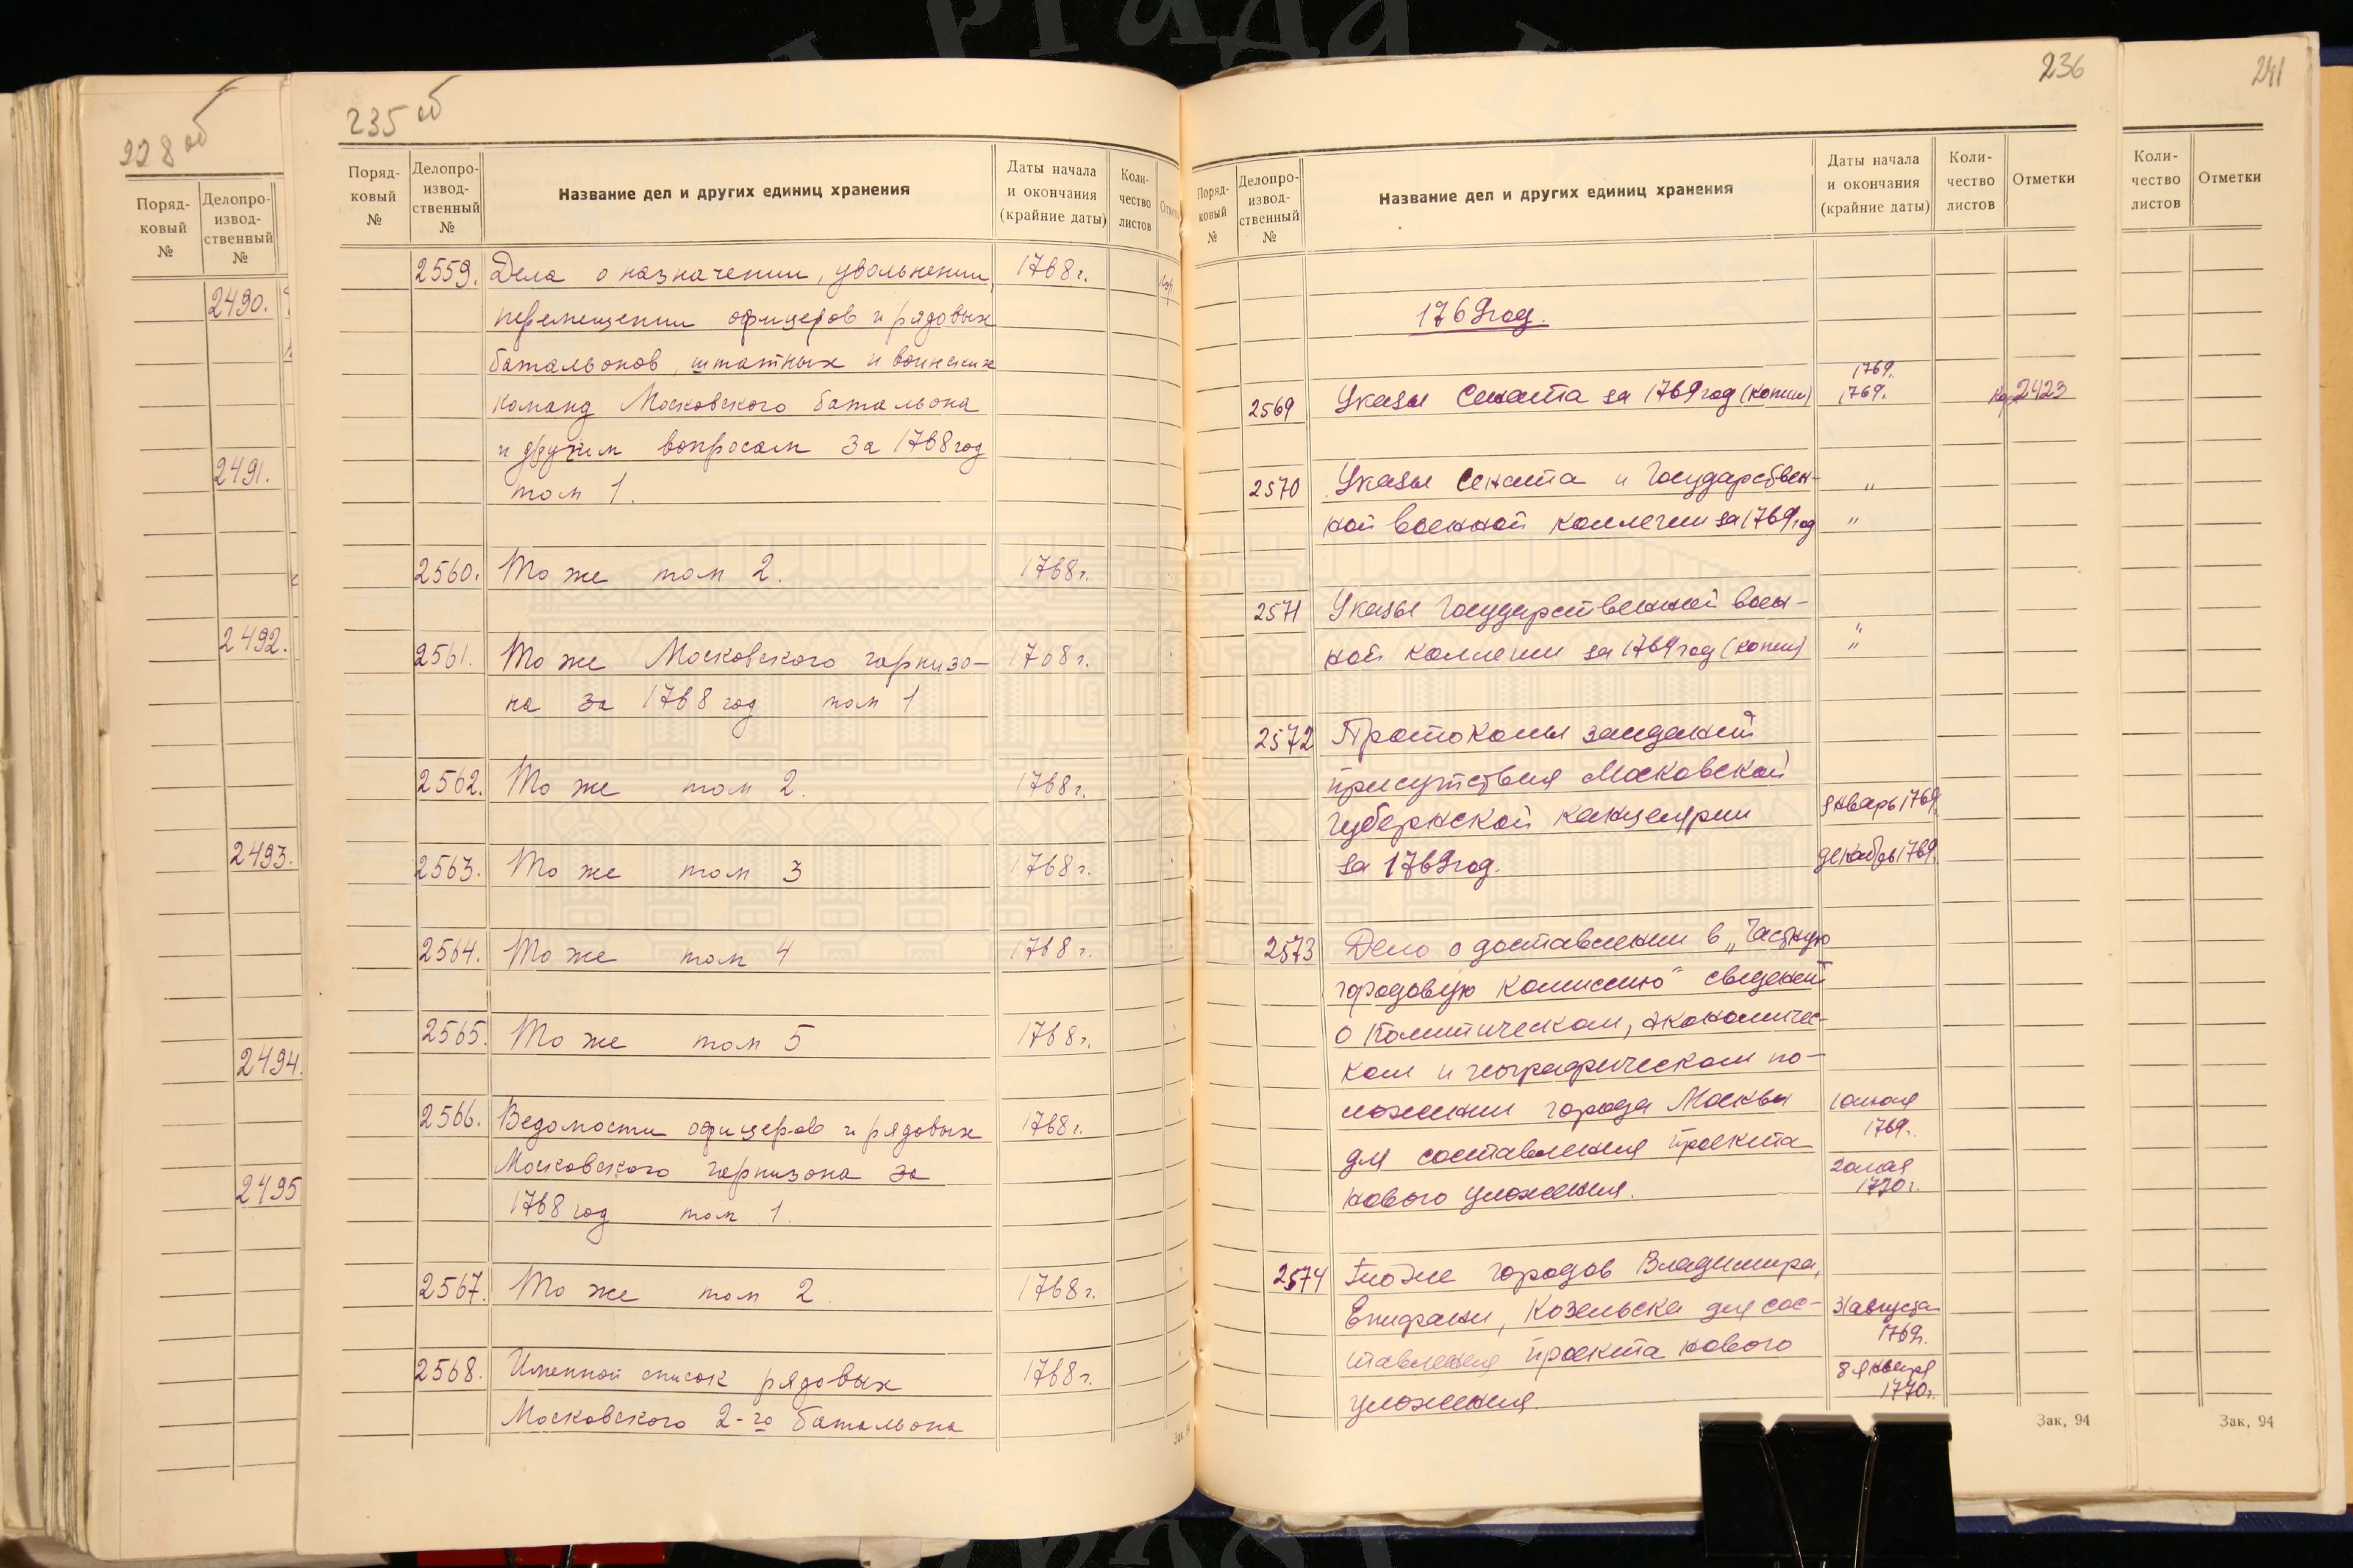 228 об
Поряд-
ковый
№
Делопро-
извод-
ственный
№
2490.
2491.
2492.
2493.
2494.
2495
235 об
Поряд-
ковый
№
Делопро-
извод-
ственный
№
Название дел и других единиц хранения
Даты начала
и окончания
(крайние даты)
Коли-
чество
листов
2559. Дела о назначении, увольнении, 1768 г.
перемещении офицеров и рядовых
батальонов, штатных и воинских
команд Московского батальона
и другим вопросам за 1768 год
том 1.
2560. То же том 2. 1768 г.
2561. То же Московского гарнизо- 1768 г.
на за 1768 год том 1
2562. То же том 2. 1768 г.
2563. То же том 3 1768 г.
2564. То же том 4 1768 г.
2565. То же том 5 1768 г.
2566. Ведомости офицеров и рядовых 1768 г.
Московского гарнизона за
1768 год том 1.
2567. То же том 2. 1768 г.
2568. Именной список рядовых 1768 г.
Московского 2-го батальона
236
Поряд-
ковый
№
Делопро-
извод-
ственный
№
Название дел и других единиц хранения
Даты начала
и окончания
(крайние даты)
Коли-
чество
листов
Отметки
1769 год.
1769г.
2569 Указы Сената за 1769 год (копии) 1769г. 2423
2570 Указы Сената и Государствен- "
ной военной коллегии за 1769 год "
2571 Указы Государственной воен- "
ной коллегии за 1769 год (копии) "
2572 Протоколы заседаний
присутствия Московской
губернской канцелярии январь 1769г.
за 1769 год. декабрь 1769г.
2573 Дело о доставлении в „Частную
городовую комиссию" сведений
о политическом, экономичес-
ком и географическом по-
ложении города Москвы
1769г.
для составления проекта
нового уложения. 1770 г.
2574 Тоже городов Владимира,
Епифани, Козельска для сос- 31 августа
1769г.
тавления проекта нового
уложения. 8 января
1770г.
Зак. 94
241
Коли-
чество
листов
Отметки
Зак. 94